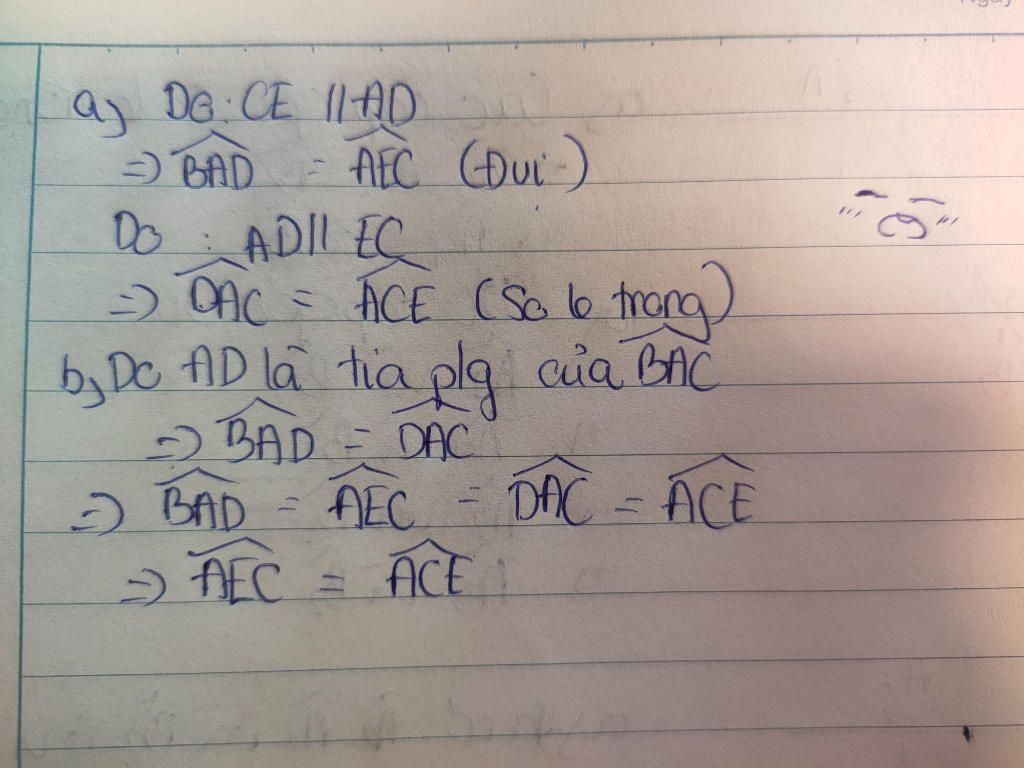 a) Do: CE // AD
=> \widehat{BAD} = \widehat{AEC} (Đvị)
Do : AD // EC
=> \widehat{DAC} = \widehat{ACE} (So le trong)
b) Do AD là tia p/g của \widehat{BAC}
=> \widehat{BAD} = \widehat{DAC}
=> \widehat{BAD} = \widehat{AEC} = \widehat{DAC} = \widehat{ACE}
=> \widehat{AEC} = \widehat{ACE}